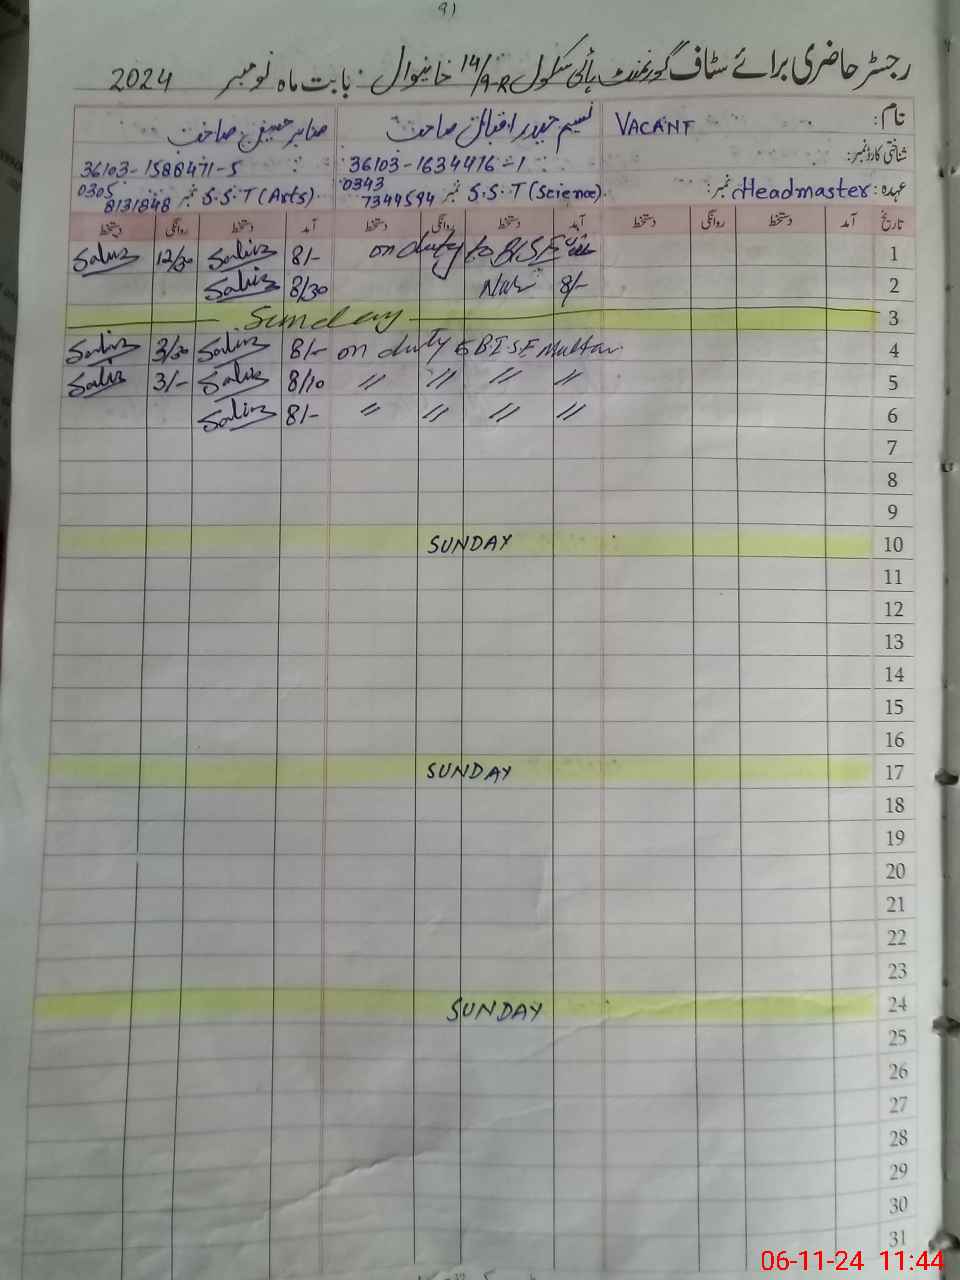 91
رجسٹر حاضری برائے سٹاف گورنمنٹ ہائی سکول 14/9-R خانیوال : بابت ماہ نومبر 2024
نام: VACANT نسیم حیدر اقبال صاحب صابر حسین صاحب
شناختی کارڈ نمبر: 36103-1634416-1 36103-1588471-5
عہدہ: Headmaster نمبر: S.S.T (Science) نمبر 0343 7344594 S.S.T (Arts) نمبر 0305 8131848
تاریخ آمد دستخط روانگی دستخط آمد دستخط روانگی دستخط آمد دستخط روانگی دستخط
1 on duty to BISE 8/- 12/30
2 8/- 8/30
3 Sunday
4 on duty to BISE Multan 8/- 3/30
5 〃 〃 〃 〃 8/10 3/-
6 〃 〃 〃 〃 8/-
7
8
9
10 SUNDAY
11
12
13
14
15
16
17 SUNDAY
18
19
20
21
22
23
24 SUNDAY
25
26
27
28
29
30
31
06-11-24 11:44